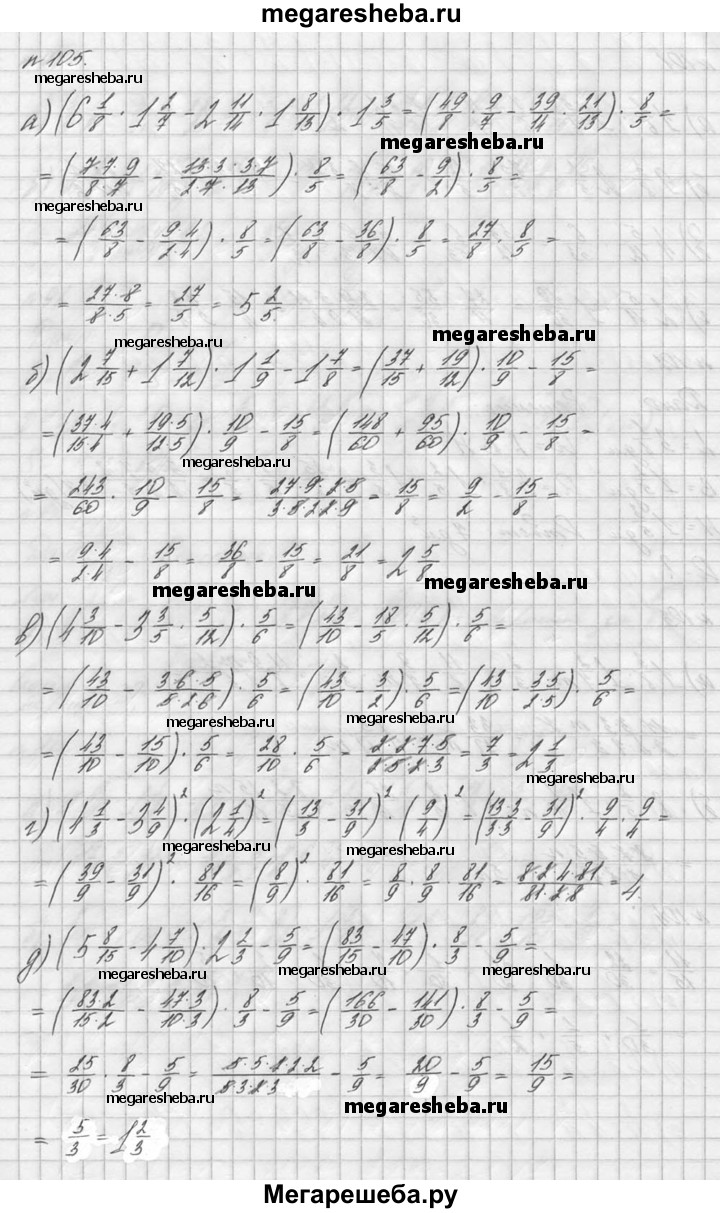 megaresheba.ru
n 105.
megaresheba.ru
а) (6 1/8 · 1 2/7 − 2 11/14 · 1 8/13) · 1 3/5 = (49/8 · 9/7 − 39/14 · 21/13) · 8/5 =
megaresheba.ru
= (7·7·9/8·7 − 13·3·3·7/2·7·13) · 8/5 = (63/8 − 9/2) · 8/5 =
megaresheba.ru
= (63/8 − 9·4/2·4) · 8/5 = (63/8 − 36/8) · 8/5 = 27/8 · 8/5 =
= 27·8/8·5 = 27/5 = 5 2/5.
megaresheba.ru megaresheba.ru
б) (2 7/15 + 1 7/12) · 1 1/9 − 1 7/8 = (37/15 + 19/12) · 10/9 − 15/8 =
= (37·4/15·4 + 19·5/12·5) · 10/9 − 15/8 = (148/60 + 95/60) · 10/9 − 15/8 =
megaresheba.ru
= 243/60 · 10/9 − 15/8 = 27·9·2·5/3·5·2·2·9 − 15/8 = 9/2 − 15/8 =
= 9·4/2·4 − 15/8 = 36/8 − 15/8 = 21/8 = 2 5/8
megaresheba.ru megaresheba.ru
в) (4 3/10 − 3 3/5 · 5/12) · 5/6 = (43/10 − 18/5 · 5/12) · 5/6 =
= (43/10 − 3·6·5/5·2·6) · 5/6 = (43/10 − 3/2) · 5/6 = (43/10 − 3·5/2·5) · 5/6 =
megaresheba.ru megaresheba.ru
= (43/10 − 15/10) · 5/6 = 28/10 · 5/6 = 2·2·7·5/2·5·2·3 = 7/3 = 2 1/3.
megaresheba.ru
г) (4 1/3 − 3 4/9)² · (2 1/4)² = (13/3 − 31/9)² · (9/4)² = (13·3/3·3 − 31/9)² · 9/4 · 9/4 =
megaresheba.ru megaresheba.ru
= (39/9 − 31/9)² · 81/16 = (8/9)² · 81/16 = 8/9 · 8/9 · 81/16 = 8·2·4·81/81·2·8 = 4.
д) (5 8/15 − 4 7/10) · 2 2/3 − 5/9 = (83/15 − 47/10) · 8/3 − 5/9 =
megaresheba.ru megaresheba.ru megaresheba.ru
= (83·2/15·2 − 47·3/10·3) · 8/3 − 5/9 = (166/30 − 141/30) · 8/3 − 5/9 =
= 25/30 · 8/3 − 5/9 = 5·5·2·2·2/5·3·2·3 − 5/9 = 20/9 − 5/9 = 15/9 =
megaresheba.ru megaresheba.ru
= 5/3 = 1 2/3
Мегарешеба.ру